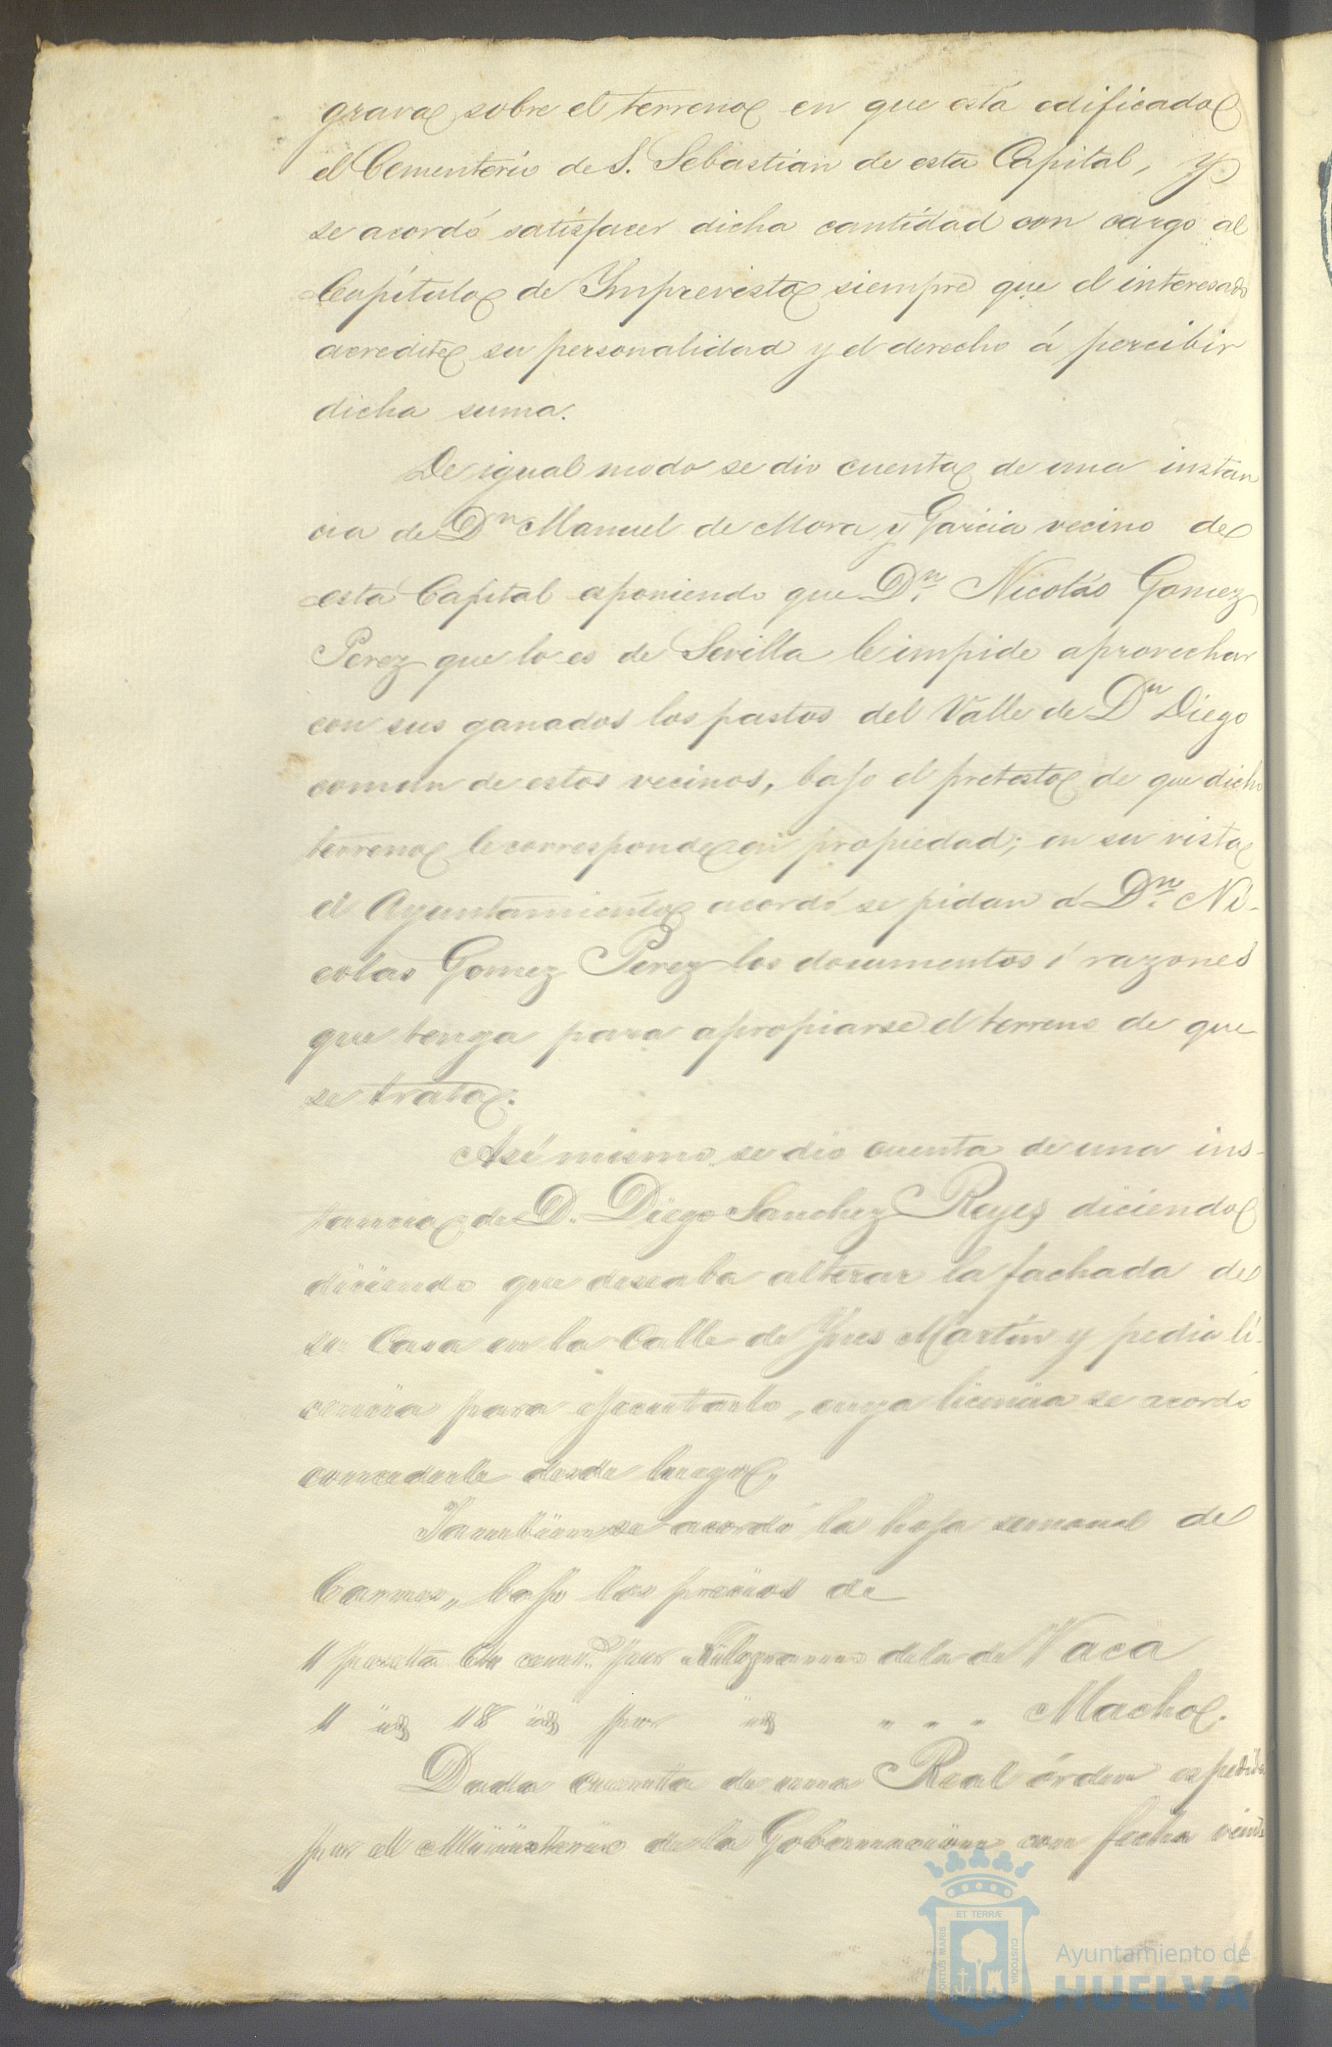 grava sobre el terreno en que está edificado
el Cementerio de S. Sebastián de esta Capital, y
se acordó satisfacer dicha cantidad con cargo al
Capítulo de Ymprevisto siempre que el interesado
acredite su personalidad y el derecho á percibir
dicha suma.
De igual modo se dio cuenta de una instan
cia de Dn Manuel de Mora y Garcia vecino de
esta Capital esponiendo que Dn. Nicolás Gomez
Perez que lo es de Sevilla le impide aprovechar
con sus ganados los pastos del Valle de Dn Diego
comun de estos vecinos, bajo el pretesto de que dicho
terreno le corresponde en propiedad; en su vista
el Ayuntamiento acordó se pidan á Dn. Ni-
colas Gomez Perez los documentos ó razones
que tenga para apropiarse el terreno de que
se trata.
Asi mismo se dio cuenta de una ins-
tancia de D. Diego Sanchez Reyes diciendo
diciendo que deseaba alterar la fachada de
su Casa en la Calle de Ynes Martín y pedia li-
cencia para ejecutarlo, cuya licencia se acordó
concederle desde luego,
Tambien se acordó la hoja semanal de
Carnes, bajo los precios de
1 peseta cent.s por Kilogramo de la de Vaca
1 id 18 id por id " " " Macho.
Dada cuenta de una Real órden espedida
por el Ministerio de la Gobernacion con fecha veinte
PORTUS MARIS ET TERRÆ CUSTODIA
Ayuntamiento de
HUELVA